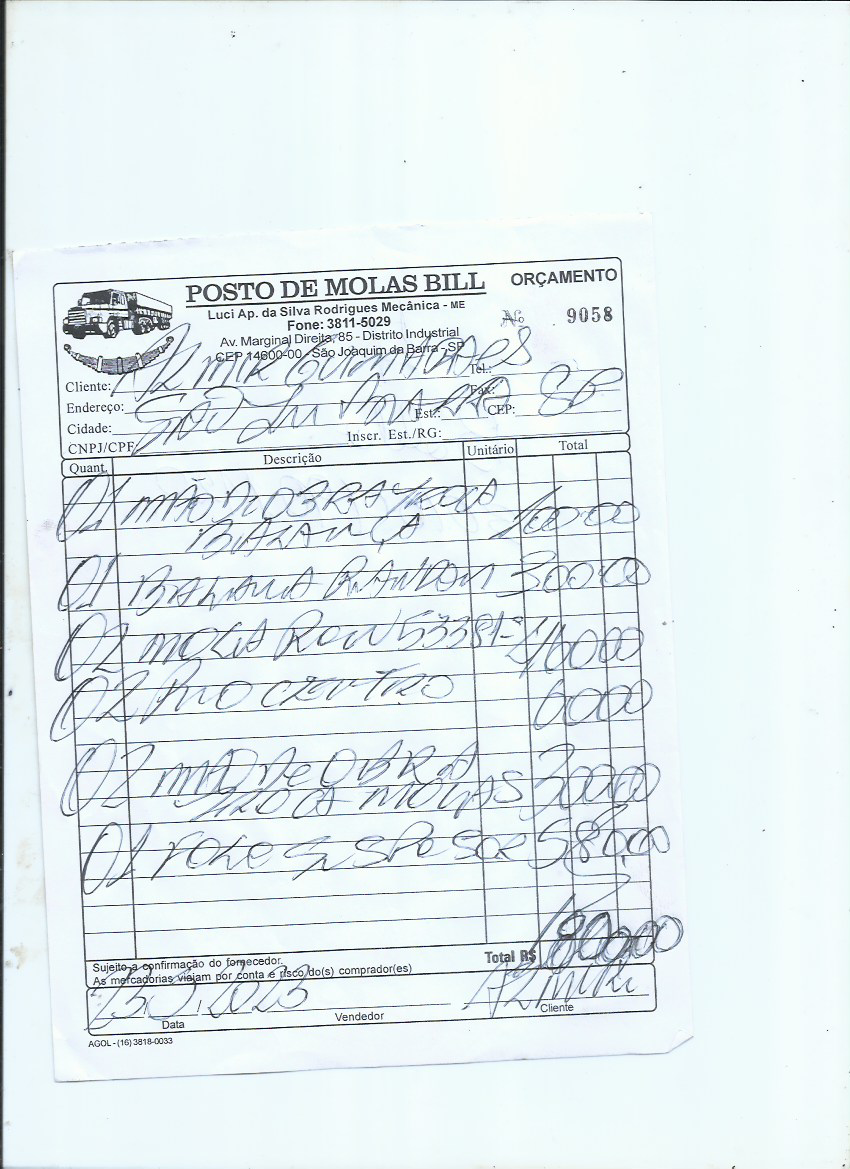 POSTO DE MOLAS BILL
ORÇAMENTO
Luci Ap. da Silva Rodrigues Mecânica - ME
Fone: 3811-5029
Nº 9058
Av. Marginal Direita, 85 - Distrito Industrial
CEP 14600-00 - São Joaquim da Barra - SP
Tel.:
Cliente:
Fax:
Endereço:
Est.: CEP: SP
Cidade: SÃO
CNPJ/CPF: Inscr. Est./RG:
Quant. Descrição Unitário Total
01 MÃO DE OBRA TROCA
BALANÇA 100,00
01 BALANÇA RANDON 300,00
02 MOLA 460,00
02 PINO CENTRO 60,00
02 MÃO DE OBRA
TROCA MOLAS 300,00
01 SUSPENSOR 580,00
Sujeito a confirmação do fornecedor.
As mercadorias viajam por conta e risco do(s) comprador(es)
Total R$ 1800,00
2023
Data Vendedor Cliente
AGOL - (16) 3818-0033